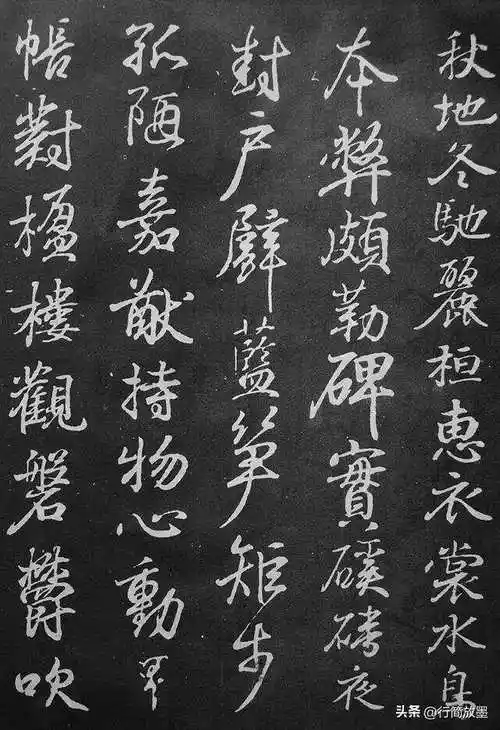 秋地冬馳麗桓惠衣裳水
本弊頗勒碑實夜
封户藍笋矩步
孤陋嘉猷持物心動
帳對楹樓觀磐鬱吹
头条 @行简放墨